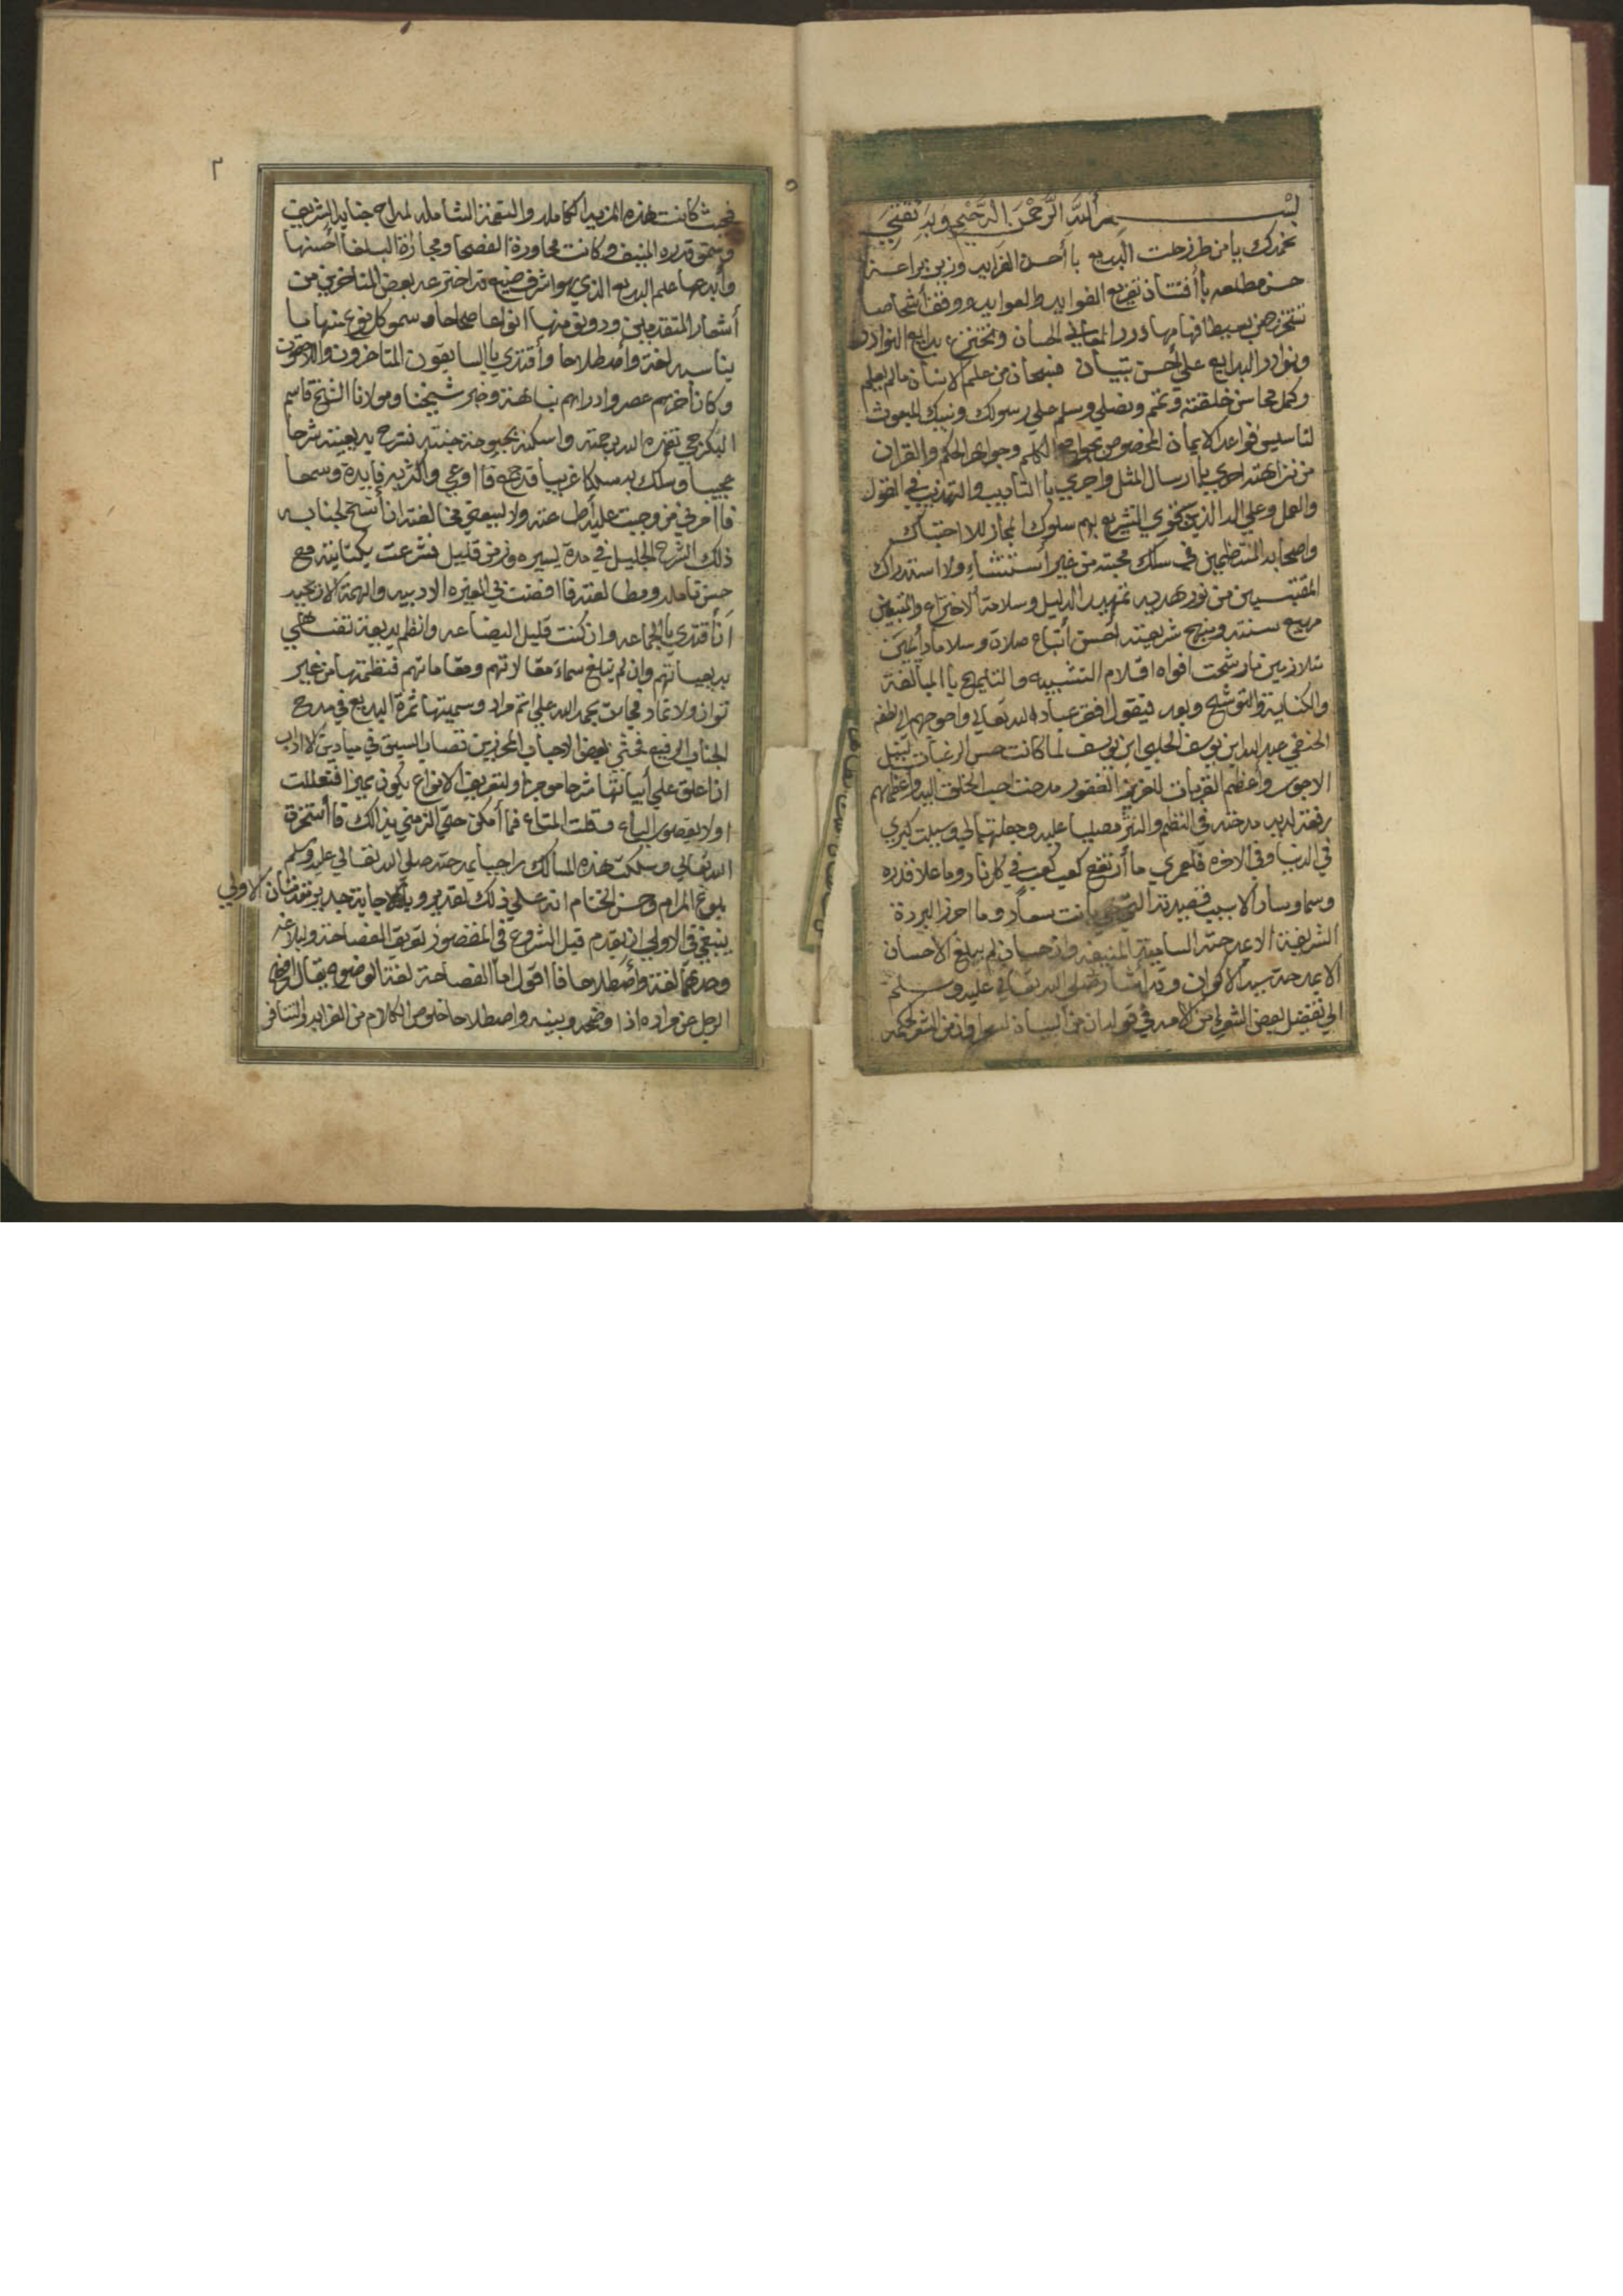 بسم الله الرحمن الرحيم وبه ثقتي
نحمدك يا من طرز حلت البديع بأحسن الفرايد وزين براعة
حسن مطلعه بأفتنان تفريع الفوايد والعوايد ووقف أشخاصا
تستخرجهن بعبط افهامها درر المعاني الحسان وتخترع بدايع النوادر
ونوادر البدايع على أحسن تبيان فسبحان من علم الانسان مالم يعلم
وكمل محاسن خلقته وتمم ونصلي ونسلم على رسولك ونبيك المبعوث
لتأسيس قواعد الايمان المخصوص بجوامع الكلم وجواهر الحكم والقران
من نزاهته بأرسال المثل واجري بالتأديب والتهذيب في القول
والعمل وعلى اله الذين التشريع بهم سلوك المجاز للاحتباك
واصحابه المنتظمين في سلك محبته من غير أستثناء ولا استدراك
المقتبسين من نور هديه تمهيد الدليل وسلامة الاختراع والمتبعين
مهيع سنته ومنهج شريعته أحسن أتباع صلاة وسلاما دأيمين
متلازمين ما رشحت افواه اقلام التشبيه والتلميح بالمبالغة
والكناية والتوشيح وبعد فيقول افقر عباد الله تعالى واحوجهم الى لطفه
الحنفي عبد الله ابن يوسف الحلبي ابن يوسف لما كانت حسن الرغبات لنيل
الاجور وأعظم القربات للعزيز الغفور مدحت احب الخلق اليه وأعظمهم
رفعة لديه مدحته في النظم والنثر مصليا عليه وجعلتها لي وسيلت كبرى
في الدنيا وفي الاخره فلعمري ما أرتفع كعب كعب في كل ناد وما علا قدره
وسما وساد الا بسبب قصيدته التي بانت سعاد وما احرز البردة
الشريفة الا بمدحته السامية المنيفه وان حسان لم يبلغ الأحسان
الا بمدحته سيد الاكوان وقد أشار صلى الله تعالى عليه وسلم
الى تفضيل بعض الشعراء من الامه في قوله ان من البيان لسحرا وان من الشعر لحكمه
٢
فحيث كانت هذه المزيه الكامله والتحفة الشامله لمداح جنابه الشريف
وسمو قدره المنيف وكانت محاورة الفصحا ومجاراة البلغا أحسنها
وأبدعها علم البديع الذي هو اشرف صنيع قد اخترعه بعض المتأخرين من
أشعار المتقدمين ودونو منها انواعا صحاحا وسمو كل نوع منها بما
يناسبه لغة وأصطلاحا وأقتدى بالسابقون المتاخرون واللاحقون
وكان أخرهم عصرا وادراهم نباهة وخبر شيخنا ومولانا الشيخ قاسم
البكرجي تغمده الله برحمته واسكنه بحبوحة جنته فشرح بديعيته شرحا
عجيبا وسلك به مسلكا غريبا قد جمع فأوعى وأكثر به فايدة وسمعا
فأمرني من وجبت علي أطاعته ولا يسعني مخالفته ان أنسخ لجنابه
ذلك الشرح الجليل في مدة يسيره وزمن قليل فشرعت بكتابته مع
حسن تأمله ومطالعته فافضت بي الغيره الادبيه والهمة الانجبيه
أن أقتدي بالجماعه وان كنت قليل البضاعه وانظم بديعية تقتفي
بديعياتهم وإن لم تبلغ سماء مقالاتهم ومقاماتهم فنظمتها من غير
توان ولا تماد فجاءت بحمد الله على اتم مراد وسميتها ثمرة البديع في مدح
الجناب الرفيع فحثني بعض الاحباب المحرزين قصاب السبق في ميادين الاداب
ان أعلق على أبياتها شرحا موجزا ولتعريف الانواع يكون مميزا فتعللت
اولا بقصور الباع وقلت المتاع فما أمكن حتى الزمني بذالك فاأستخرت
الله تعالى وسلكت هذه المسالك راجيا بمدحته صلى الله تعالى عليه وسلم
بلوغ المرام وحسن الختام انه على ذلك لقدير وبالاجابة جدير مقدمتان الاولى
ينبغي في الاولى ان يقدم قبل الشروع في المقصود تعريف الفصاحة والبلاغه
وحدهما لغة وأصطلاحا فأقول اما الفصاحة لغة الوضوح يقال افصح
الرجل عن مراده اذا وضحه وبينه واصطلاحا خلوص الكلام من الغرابه والتنافر